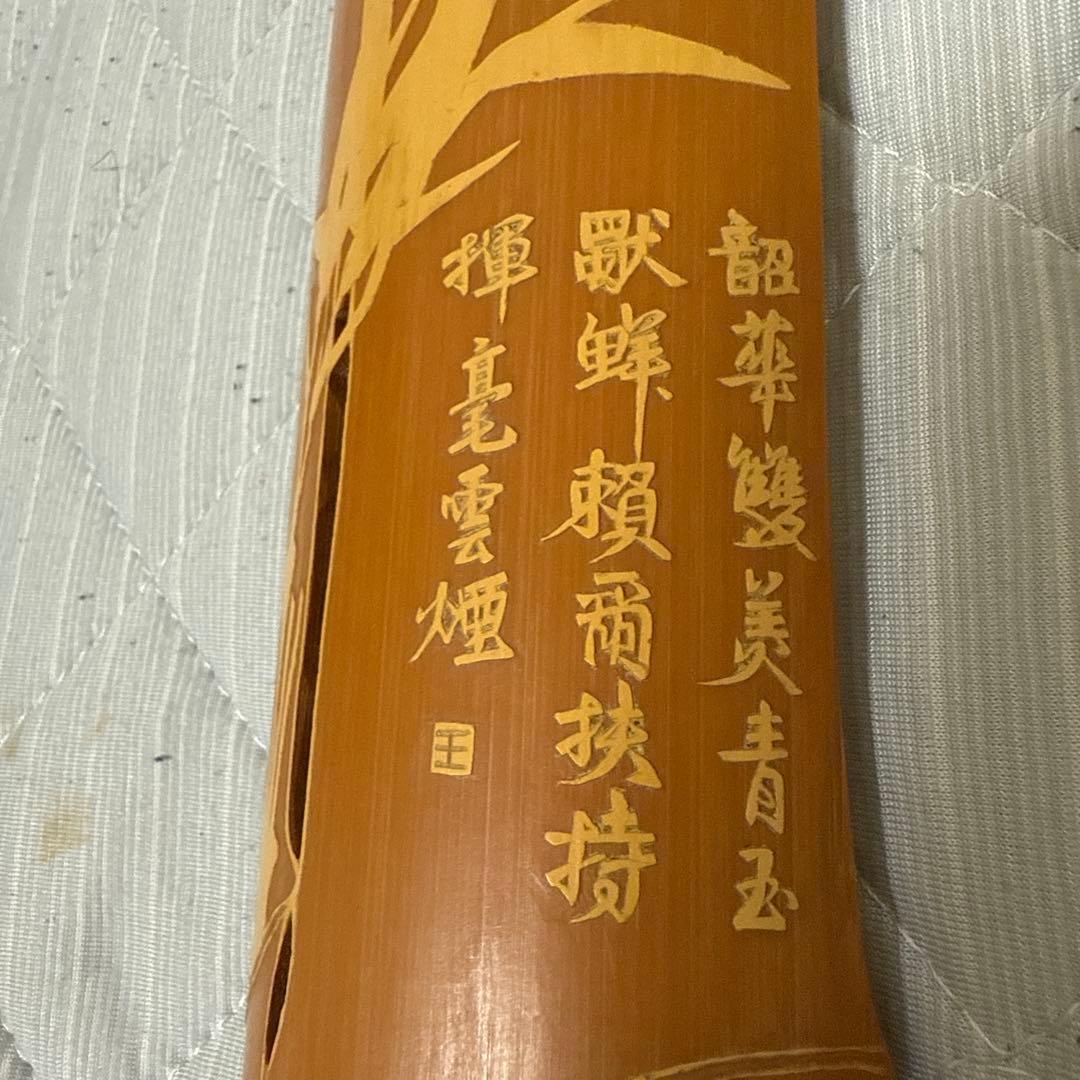 韶華雙美青玉
獸鮮賴爾扶持
揮毫雲煙
王